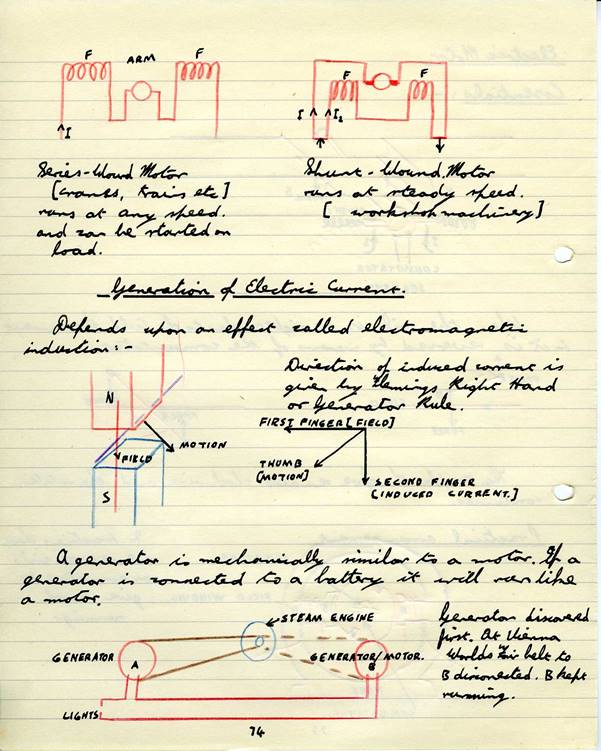 F ARM F
I
F F
I I₂
Series-Wound Motor
[cranes, trains etc]
runs at any speed.
and can be started on
load.
Shunt-Wound Motor
runs at steady speed.
[workshop machinery]
Generation of Electric Current.
Depends upon an effect called electromagnetic
induction:-
Direction of induced current is
given by Flemings Right Hand
or Generator Rule.
N
MOTION
FIELD
S
FIRST FINGER [FIELD]
THUMB
[MOTION]
SECOND FINGER
[INDUCED CURRENT.]
A generator is mechanically similar to a motor. If a
generator is connected to a battery it will run like
a motor.
STEAM ENGINE
GENERATOR
A
GENERATOR/MOTOR.
B
LIGHTS
Generator discovered
first. At Vienna
Worlds Fair belt to
B disconnected. B kept
running.
74